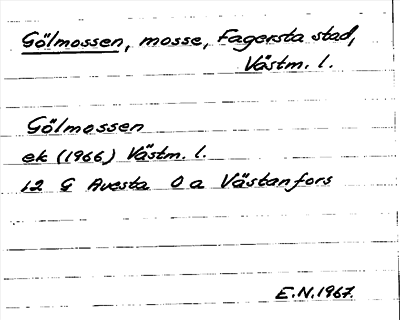 Gölmossen, mosse, Fagersta stad,
Västm. l.
Gölmossen
ek (1966) Västm. l.
12 G Avesta O a Västanfors
E.N.1967.